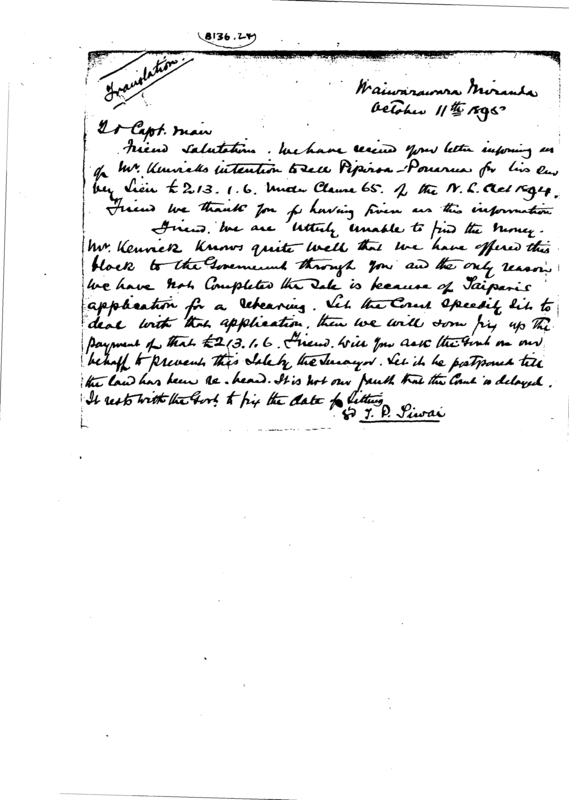 B136.24
Translation.
Waiwarawara Miranda
October 11th 1895
To Capt. Mair
Friend Salutations. We have received your letter informing us
of Mr. Kenrick's intention to sell Pipiroa-Ponarua for his Sur
vey Lien £213.1.6. Under Clause 65. of the N. L. Act 1894.
Friend we thank you for having given us this information
Friend. We are utterly unable to find the money.
Mr. Kenrick knows quite well that we have offered this
block to the Government through you and the only reason
we have not completed the sale is because of Taipari's
application for a rehearing. Let the Court speedily sit to
deal with that application, then we will soon fix up the
payment of that £213.1.6. Friend. Will you ask the Govt on our
behalf to prevent this sale by the Surveyor. Let it be postponed till
the land has been re-heard. It is not our fault that the Court is delayed.
It rests with the Govt. to fix the date for Sitting
Sd T. P. Tiwai